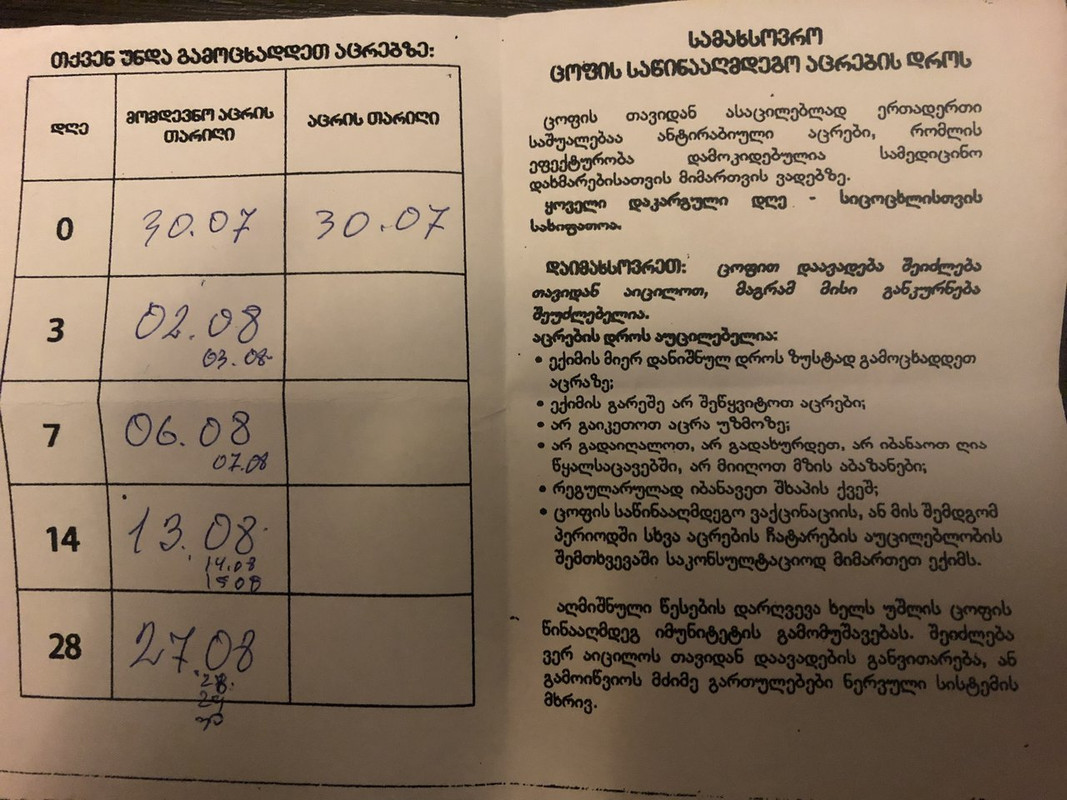 თქვენ უნდა გამოცხადდეთ აცრებზე:
დღე
მომდევნო აცრის
თარიღი
აცრის თარიღი
0
30.07
30.07
3
02.08
03.08
7
06.08
07.08
14
13.08
14.08
15 08
28
27.08
28.
29
სამახსოვრო
ცოფის საწინააღმდეგო აცრების დროს
ცოფის თავიდან ასაცილებლად ერთადერთი
საშუალებაა ანტირაბიული აცრები, რომლის
ეფექტურობა დამოკიდებულია სამედიცინო
დახმარებისათვის მიმართვის ვადებზე.
ყოველი დაკარგული დღე - სიცოცხლისთვის
სახიფათოა.
დაიმახსოვრეთ: ცოფით დაავადება შეიძლება
თავიდან აიცილოთ, მაგრამ მისი განკურნება
შეუძლებელია.
აცრების დროს აუცილებელია:
• ექიმის მიერ დანიშნულ დროს ზუსტად გამოცხადდეთ
აცრაზე;
• ექიმის გარეშე არ შეწყვიტოთ აცრები;
• არ გაიკეთოთ აცრა უზმოზე;
• არ გადაიღალოთ, არ გადახურდეთ, არ იბანაოთ ღია
წყალსაცავებში, არ მიიღოთ მზის აბაზანები;
• რეგულარულად იბანავეთ შხაპის ქვეშ;
• ცოფის საწინააღმდეგო ვაქცინაციის, ან მის შემდგომ
პერიოდში სხვა აცრების ჩატარების აუცილებლობის
შემთხვევაში საკონსულტაციოდ მიმართეთ ექიმს.
აღმიშნული წესების დარღვევა ხელს უშლის ცოფის
წინააღმდეგ იმუნიტეტის გამომუშავებას. შეიძლება
ვერ აიცილოს თავიდან დაავადების განვითარება, ან
გამოიწვიოს მძიმე გართულებები ნერვული სისტემის
მხრივ.